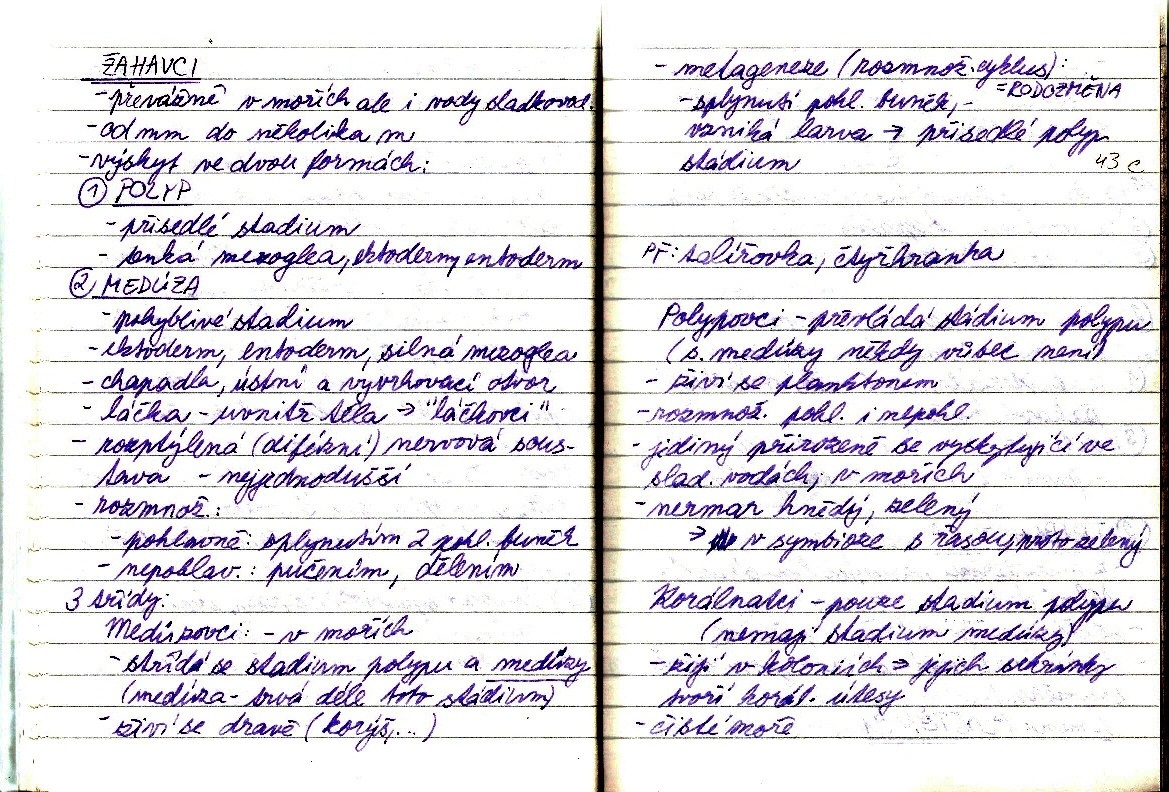 ŽAHAVCI
- převážně v mořích ale i vody sladkovod.
- od mm do několika m
- výskyt ve dvou formách:
① POLYP
- přisedlé stadium
- tenká mezoglea, ektoderm, entoderm
② MEDÚZA
- pohyblivé stadium
- ektoderm, entoderm, silná mezoglea
- chapadla, ústní a vyvrhovací otvor
- láčka - uvnitř těla → "láčkovci"
- rozptýlená (difúzní) nervová sous-
tava - nejjednodušší
- rozmnož.:
- pohlavně: splynutím 2 pohl. buněk
- nepohlav.: pučením, dělením
3 třídy:
Medúzovci: - v mořích
- střídá se stadium polypu a medúzy
(medúza - trvá déle toto stádium)
- živí se dravě (korýš,...)
- metageneze (rozmnož. cyklus):
= RODOZMĚNA
- splynutí pohl. buněk, -
vzniká larva → přisedlé polyp
stádium
43 c
PŘ: talířovka, čtyřhranka
Polypovci - převládá stádium polypu
(s. medúzy někdy vůbec není)
- živí se planktonem
- rozmnož. pohl. i nepohl.
- jediný přirozeně se vyskytující ve
slad. vodách, v mořích
- nezmar hnědý, zelený
→ v symbióze s řasou, proto zelený
Korálnatci - pouze stadium polypu
(nemají stadium medúzy)
- žijí v koloniích ⇒ jejich schránky
tvoří korál. útesy
- čisté moře